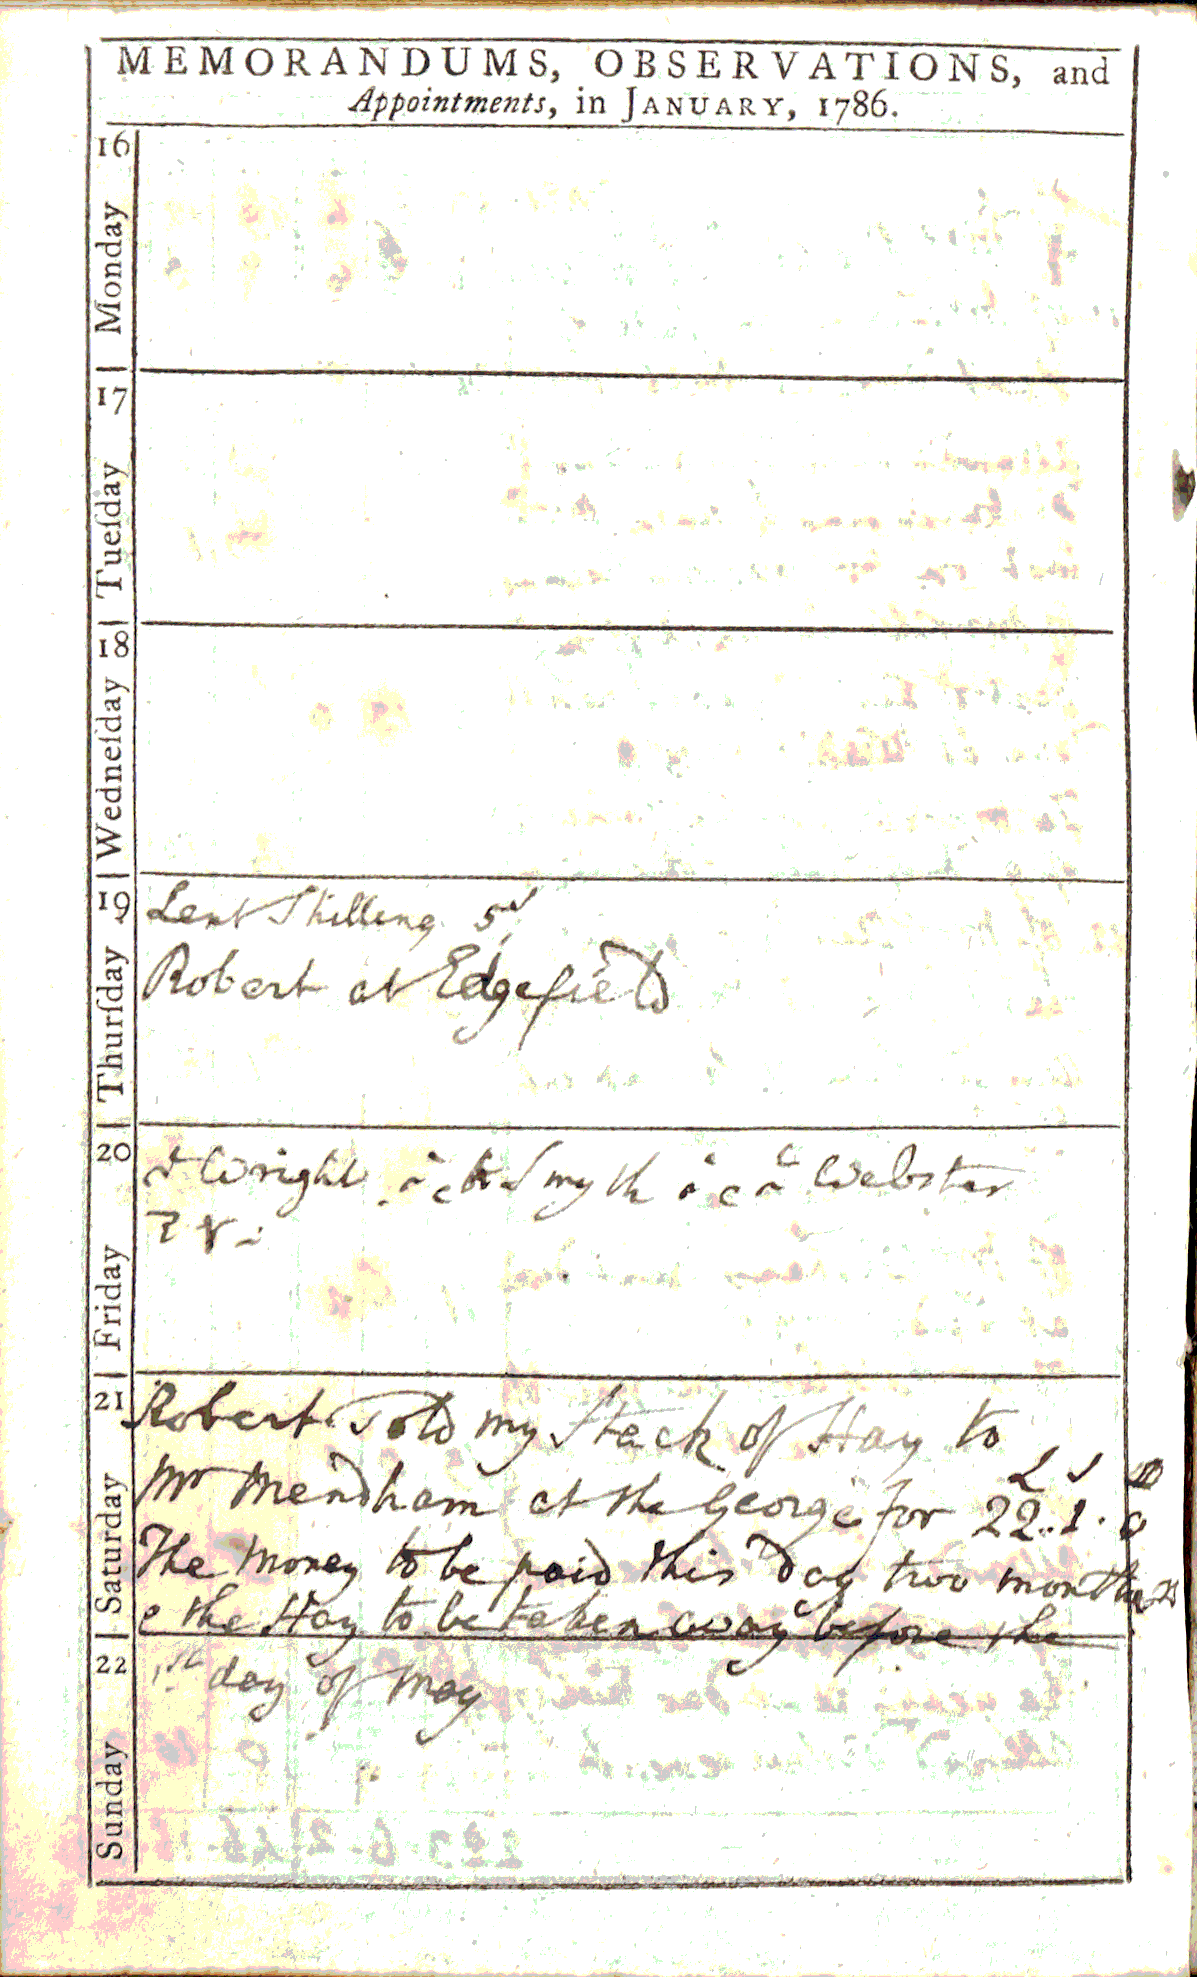 MEMORANDUMS, OBSERVATIONS, and
Appointments, in JANUARY, 1786.
16
Monday
17
Tueſday
18
Wedneſday
19
Thurſday
Lent Skilling 5
Robert at Edgefield
20
Friday
Wright Smyth Webster
21
Saturday
Robert Sold my Stack of Hay to
Mr Mendham at the George for 22.1.0
The money to be paid this Day two months
the Hay to be taken away before the
22
Sunday
1st day of May